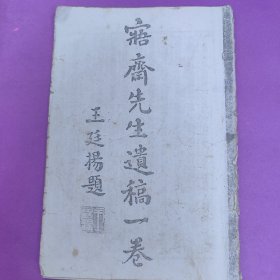 寤齋先生遺稿一卷
王廷揚題